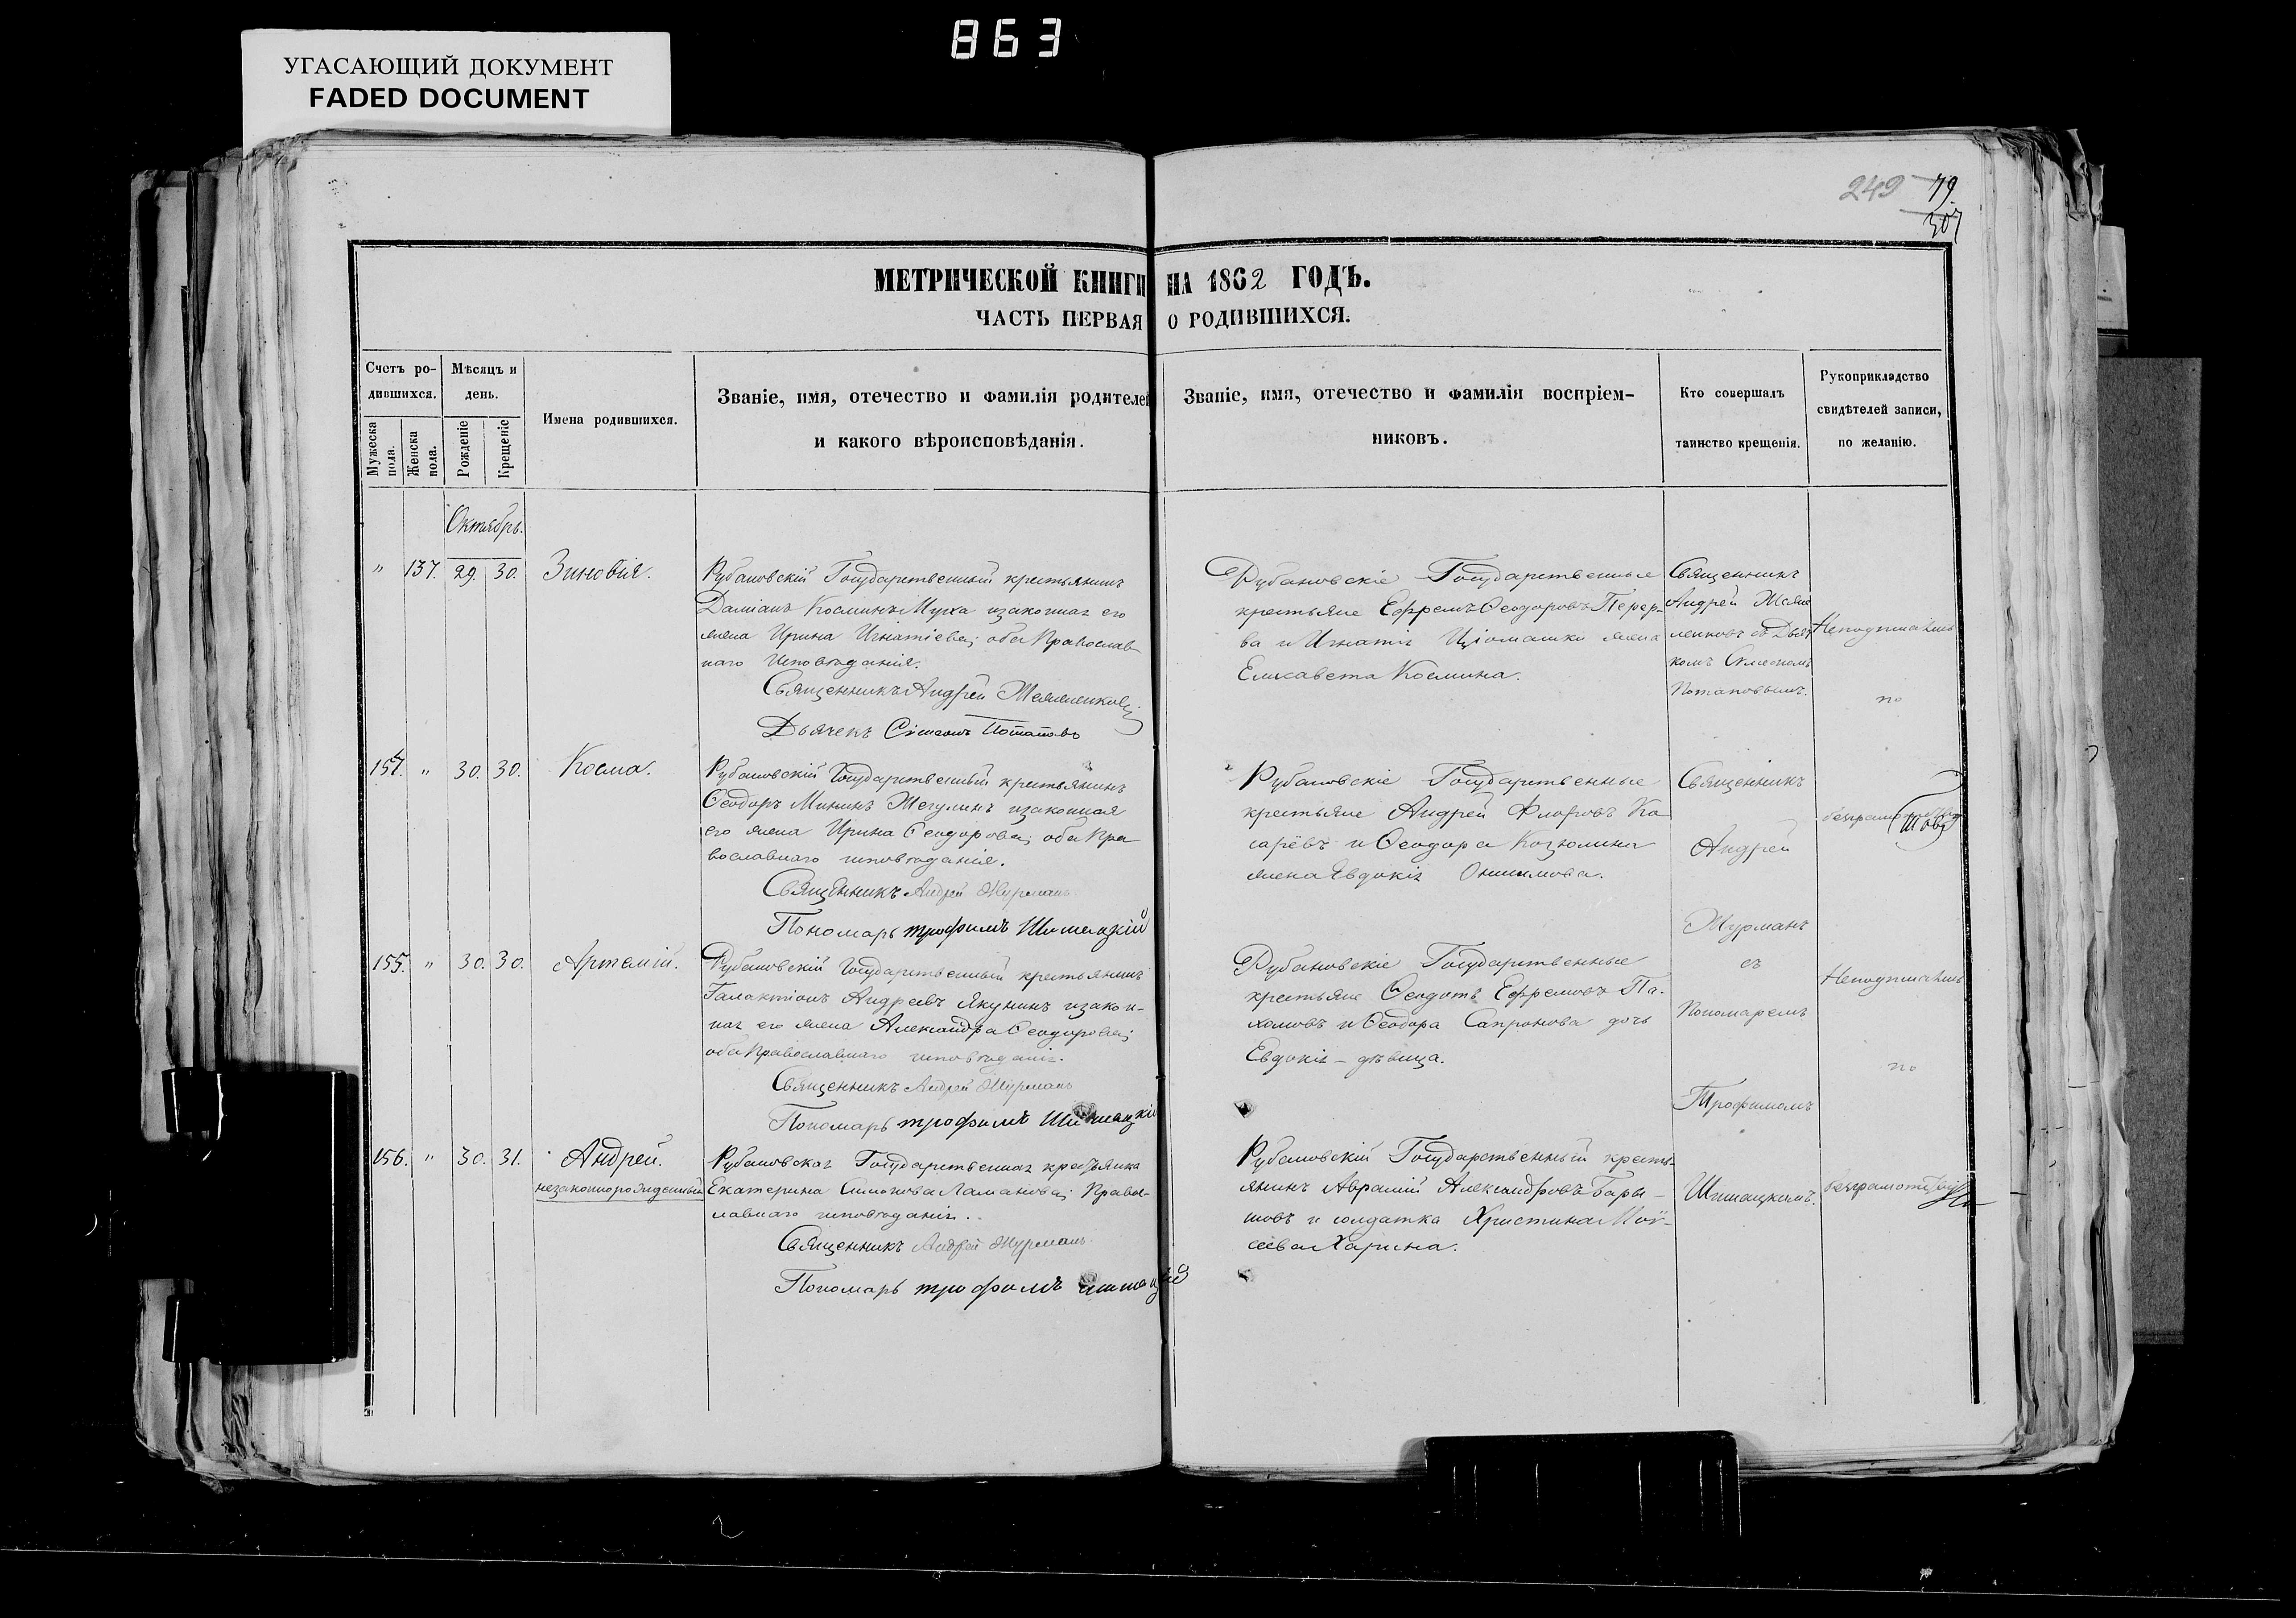 863
УГАСАЮЩИЙ ДОКУМЕНТ
FADED DOCUMENT
249 79.
307
МЕТРИЧЕСКОЙ КНИГИ НА 1862 ГОДЪ.
ЧАСТЬ ПЕРВАЯ О РОДИВШИХСЯ.
Счетъ ро-
дившихся.
Мужеска
пола.
Женска
пола.
Мѣсяцъ и
день.
Рожденіе
Крещеніе
Имена родившихся.
Званіе, имя, отечество и фамилія родителей
и какого вѣроисповѣданія.
Званіе, имя, отечество и фамилія воспріем-
никовъ.
Кто совершалъ
таинство крещенія.
Рукоприкладство
свидѣтелей записи,
по желанію.
Октябрь.
" 137. 29. 30. Зиновія.
Рубановскій Государственный крестьянинъ
Даміанъ Косминъ Муха изаконная его
жена Ирина Игнатіева; оба Православ-
наго исповѣданія.
Священникъ Андрей
Дьячекъ Сімеонъ Потаповъ
Рубановскіе Государственные
крестьяне Ефремъ Ѳеодоровъ Перер-
ва и Игнатія жена
Елисавета Космина.
Священникъ
Андрей
съ Дьяч
комъ Симеономъ
Потаповымъ.
154. " 30. 30. Косма.
Рубановскій Государственный крестьянинъ
Ѳеодоръ Мининъ Жегулинъ изаконная
его жена Ирина Ѳеодорова; оба Пра
вославнаго исповѣданія.
Священникъ Андрей Журманъ
Пономарь трофимъ Шишацкій
Рубановскіе Государственные
крестьяне Андрей Флоровъ Ко
сарёвъ и Ѳеодора Козюлина
жена Евдокія Онисимова.
Священникъ
Андрей
Журманъ
съ
Пономаремъ
Трофимомъ
Шишацкимъ.
155. " 30. 30. Артемій.
Рубановскій Государственный крестьянинъ
Галактіонъ Андреевъ Якунинъ изакон-
ная его жена Александра Ѳеодорова;
оба Православнаго исповѣданія.
Священникъ Андрей Журманъ
Пономарь трофимъ Шишацкій
Рубановскіе Государственные
крестьяне Ѳеодотъ Ефремовъ Па-
холовъ и Ѳеодора Сапронова дочь
Евдокія – дѣвица.
156. " 30. 31. Андрей.
незаконнорожденный
Рубановская Государственная крестьянка
Екатерина Симонова Ламанова; Правос-
лавнаго исповѣданія.
Священникъ Андрей Журманъ
Пономарь трофимъ
Рубановскій Государственный кресть-
янинъ Аврамій Александровъ Бары-
шовъ и солдатка Христина Моѵ-
сеева Харина.
Неподписались
по
Неподписались
по